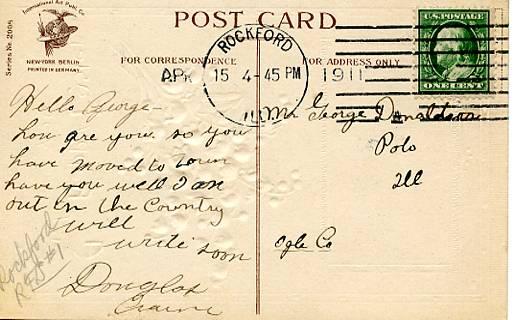 International Art Publ. Co.
Series No. 2006
NEW-YORK BERLIN
PRINTED IN GERMANY.
POST CARD
FOR CORRESPONDENCE
FOR ADDRESS ONLY
ROCKFORD
APR 15 4-45 PM 1911
ILL.
U.S. POSTAGE
ONE CENT
Hello George -
how are you. so you
have moved to town
have you well I am
out in the Country
will
write soon
Douglas
Rockford
RFD #1
Mr George Donaldson
Polo
Ill
Ogle Co